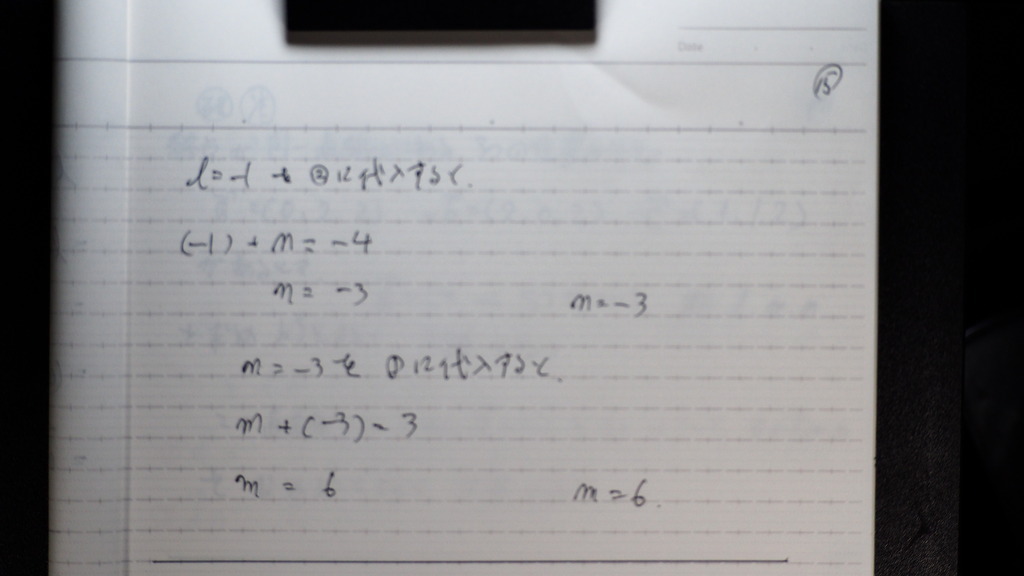 Date
⑮
l=-1を②に代入すると.
(-1)+n=-4
n=-3 n=-3
n=-3を①に代入すると.
m+(-3)=3
m=6 m=6.